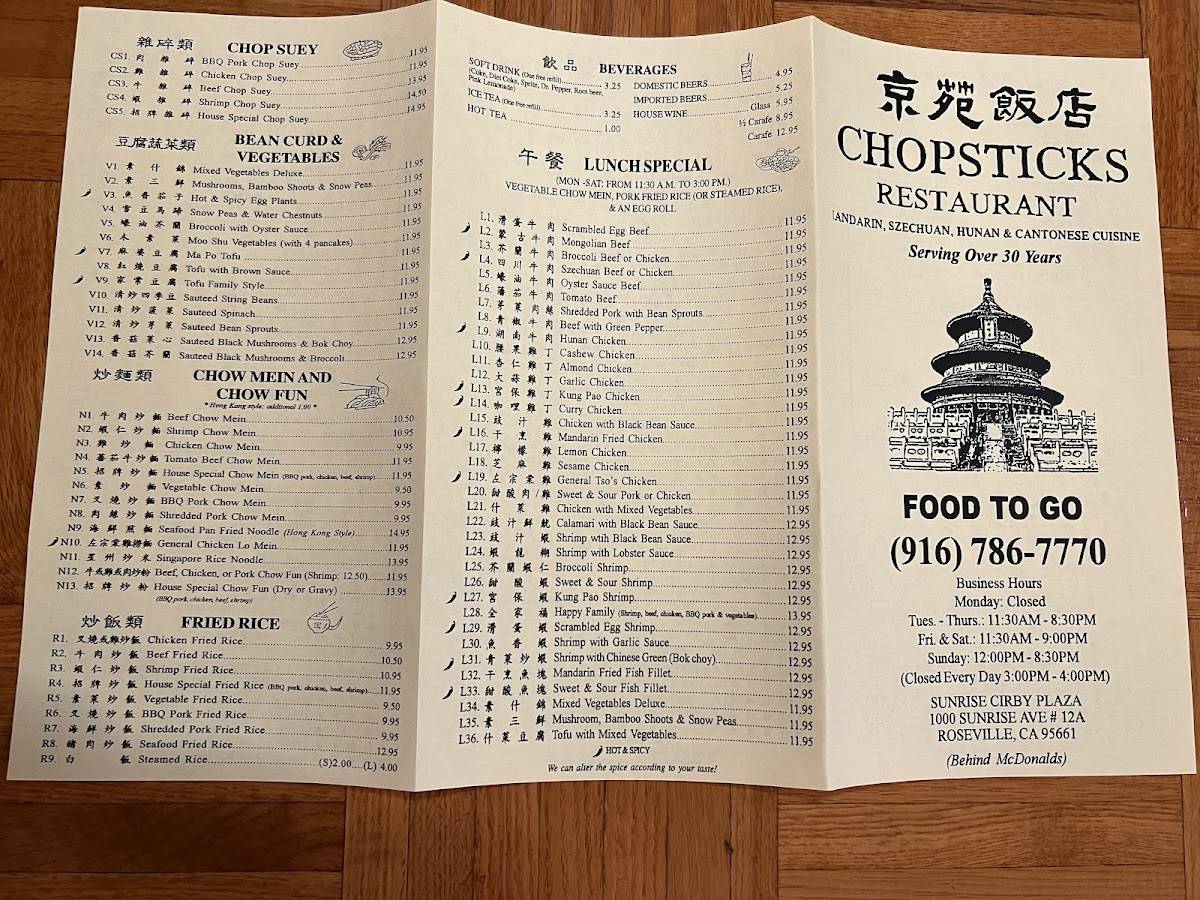 雜碎類 CHOP SUEY
CS1. 肉雜碎 BBQ Pork Chop Suey 11.95
CS2. 雞雜碎 Chicken Chop Suey 11.95
CS3. 牛雜碎 Beef Chop Suey 13.95
CS4. 蝦雜碎 Shrimp Chop Suey 14.50
CS5. 招牌雜碎 House Special Chop Suey 14.95
豆腐蔬菜類 BEAN CURD &
VEGETABLES
V1. 素什錦 Mixed Vegetables Deluxe 11.95
V2. 素三鮮 Mushrooms, Bamboo Shoots & Snow Peas 11.95
V3. 魚香茄子 Hot & Spicy Egg Plants 11.95
V4. 雪豆馬蹄 Snow Peas & Water Chestnuts 11.95
V5. 蠔油芥蘭 Broccoli with Oyster Sauce 11.95
V6. 木素菜 Moo Shu Vegetables (with 4 pancakes) 11.95
V7. 麻婆豆腐 Ma Po Tofu 11.95
V8. 紅燒豆腐 Tofu with Brown Sauce 11.95
V9. 家常豆腐 Tofu Family Style 11.95
V10. 清炒四季豆 Sauteed String Beans 11.95
V11. 清炒菠菜 Sauteed Spinach 11.95
V12. 清炒芽菜 Sauteed Bean Sprouts 11.95
V13. 香菇菜心 Sauteed Black Mushrooms & Bok Choy 12.95
V14. 香菇芥蘭 Sauteed Black Mushrooms & Broccoli 12.95
炒麵類 CHOW MEIN AND
CHOW FUN
* Hong Kong style: additional 1.00 *
N1. 牛肉炒麵 Beef Chow Mein 10.50
N2. 蝦仁炒麵 Shrimp Chow Mein 10.95
N3. 雞炒麵 Chicken Chow Mein 9.95
N4. 蕃茄牛炒麵 Tomato Beef Chow Mein 11.95
N5. 招牌炒麵 House Special Chow Mein (BBQ pork, chicken, beef, shrimp) 11.95
N6. 素炒麵 Vegetable Chow Mein 9.50
N7. 叉燒炒麵 BBQ Pork Chow Mein 9.95
N8. 肉絲炒麵 Shredded Pork Chow Mein 9.95
N9. 海鮮煎麵 Seafood Pan Fried Noodle (Hong Kong Style) 14.95
N10. 左宗棠雞撈麵 General Chicken Lo Mein 11.95
N11. 星州炒米 Singapore Rice Noodle 13.95
N12. 牛或雞或肉炒粉 Beef, Chicken, or Pork Chow Fun (Shrimp: 12.50) 11.95
N13. 招牌炒粉 House Special Chow Fun (Dry or Gravy) 13.95
(BBQ pork, chicken, beef, shrimp)
炒飯類 FRIED RICE
R1. 叉燒或雞炒飯 Chicken Fried Rice 9.95
R2. 牛肉炒飯 Beef Fried Rice 10.50
R3. 蝦仁炒飯 Shrimp Fried Rice 10.95
R4. 招牌炒飯 House Special Fried Rice (BBQ pork, chicken, beef, shrimp) 11.95
R5. 素菜炒飯 Vegetable Fried Rice 9.50
R6. 叉燒炒飯 BBQ Pork Fried Rice 9.95
R7. 海鮮炒飯 Shredded Pork Fried Rice 9.95
R8. 豬肉炒飯 Seafood Fried Rice 12.95
R9. 白飯 Steamed Rice (S)2.00 (L) 4.00
飲品 BEVERAGES
SOFT DRINK (One free refill) 3.25
(Coke, Diet Coke, Sprite, Dr. Pepper, Root beer,
Pink Lemonade)
ICE TEA (One free refill) 3.25
HOT TEA 1.00
DOMESTIC BEERS 4.95
IMPORTED BEERS 5.25
HOUSE WINE Glass 5.95
½ Carafe 8.95
Carafe 12.95
午餐 LUNCH SPECIAL
(MON -SAT: FROM 11:30 A.M. TO 3:00 PM.)
VEGETABLE CHOW MEIN, PORK FRIED RICE (OR STEAMED RICE),
& AN EGG ROLL
L1. 滑蛋牛肉 Scrambled Egg Beef 11.95
L2. 蒙古牛肉 Mongolian Beef 11.95
L3. 芥蘭牛肉 Broccoli Beef or Chicken 11.95
L4. 四川牛肉 Szechuan Beef or Chicken 11.95
L5. 蠔油牛肉 Oyster Sauce Beef 11.95
L6. 蕃茄牛肉 Tomato Beef 11.95
L7. 芽菜肉絲 Shredded Pork with Bean Sprouts 11.95
L8. 青椒牛肉 Beef with Green Pepper 11.95
L9. 湖南牛肉 Hunan Chicken 11.95
L10. 腰果雞丁 Cashew Chicken 11.95
L11. 杏仁雞丁 Almond Chicken 11.95
L12. 大蒜雞丁 Garlic Chicken 11.95
L13. 宮保雞丁 Kung Pao Chicken 11.95
L14. 咖哩雞丁 Curry Chicken 11.95
L15. 豉汁雞 Chicken with Black Bean Sauce 11.95
L16. 干烹雞 Mandarin Fried Chicken 11.95
L17. 檸檬雞 Lemon Chicken 11.95
L18. 芝麻雞 Sesame Chicken 11.95
L19. 左宗棠雞 General Tso's Chicken 11.95
L20. 甜酸肉/雞 Sweet & Sour Pork or Chicken 11.95
L21. 什菜雞 Chicken with Mixed Vegetables 11.95
L22. 豉汁鮮魷 Calamari with Black Bean Sauce 12.95
L23. 豉汁蝦 Shrimp wtih Black Bean Sauce 12.95
L24. 蝦龍糊 Shrimp with Lobster Sauce 12.95
L25. 芥蘭蝦仁 Broccoli Shrimp 12.95
L26. 甜酸蝦 Sweet & Sour Shrimp 12.95
L27. 宮保蝦 Kung Pao Shrimp 12.95
L28. 全家福 Happy Family (Shrimp, beef, chicken, BBQ pork & vegetables) 13.95
L29. 滑蛋蝦 Scrambled Egg Shrimp 12.95
L30. 魚香蝦 Shrimp with Garlic Sauce 12.95
L31. 青菜炒蝦 Shrimp with Chinese Green (Bok choy) 12.95
L32. 干烹魚塊 Mandarin Fried Fish Fillet 12.95
L33. 甜酸魚塊 Sweet & Sour Fish Fillet 12.95
L34. 素什錦 Mixed Vegetables Deluxe 11.95
L35. 素三鮮 Mushroom, Bamboo Shoots & Snow Peas 11.95
L36. 什菜豆腐 Tofu with Mixed Vegetables 11.95
HOT & SPICY
We can alter the spice according to your taste!
京苑飯店
CHOPSTICKS
RESTAURANT
ANDARIN, SZECHUAN, HUNAN & CANTONESE CUISINE
Serving Over 30 Years
FOOD TO GO
(916) 786-7770
Business Hours
Monday: Closed
Tues. - Thurs.: 11:30AM - 8:30PM
Fri. & Sat.: 11:30AM - 9:00PM
Sunday: 12:00PM - 8:30PM
(Closed Every Day 3:00PM - 4:00PM)
SUNRISE CIRBY PLAZA
1000 SUNRISE AVE # 12A
ROSEVILLE, CA 95661
(Behind McDonalds)